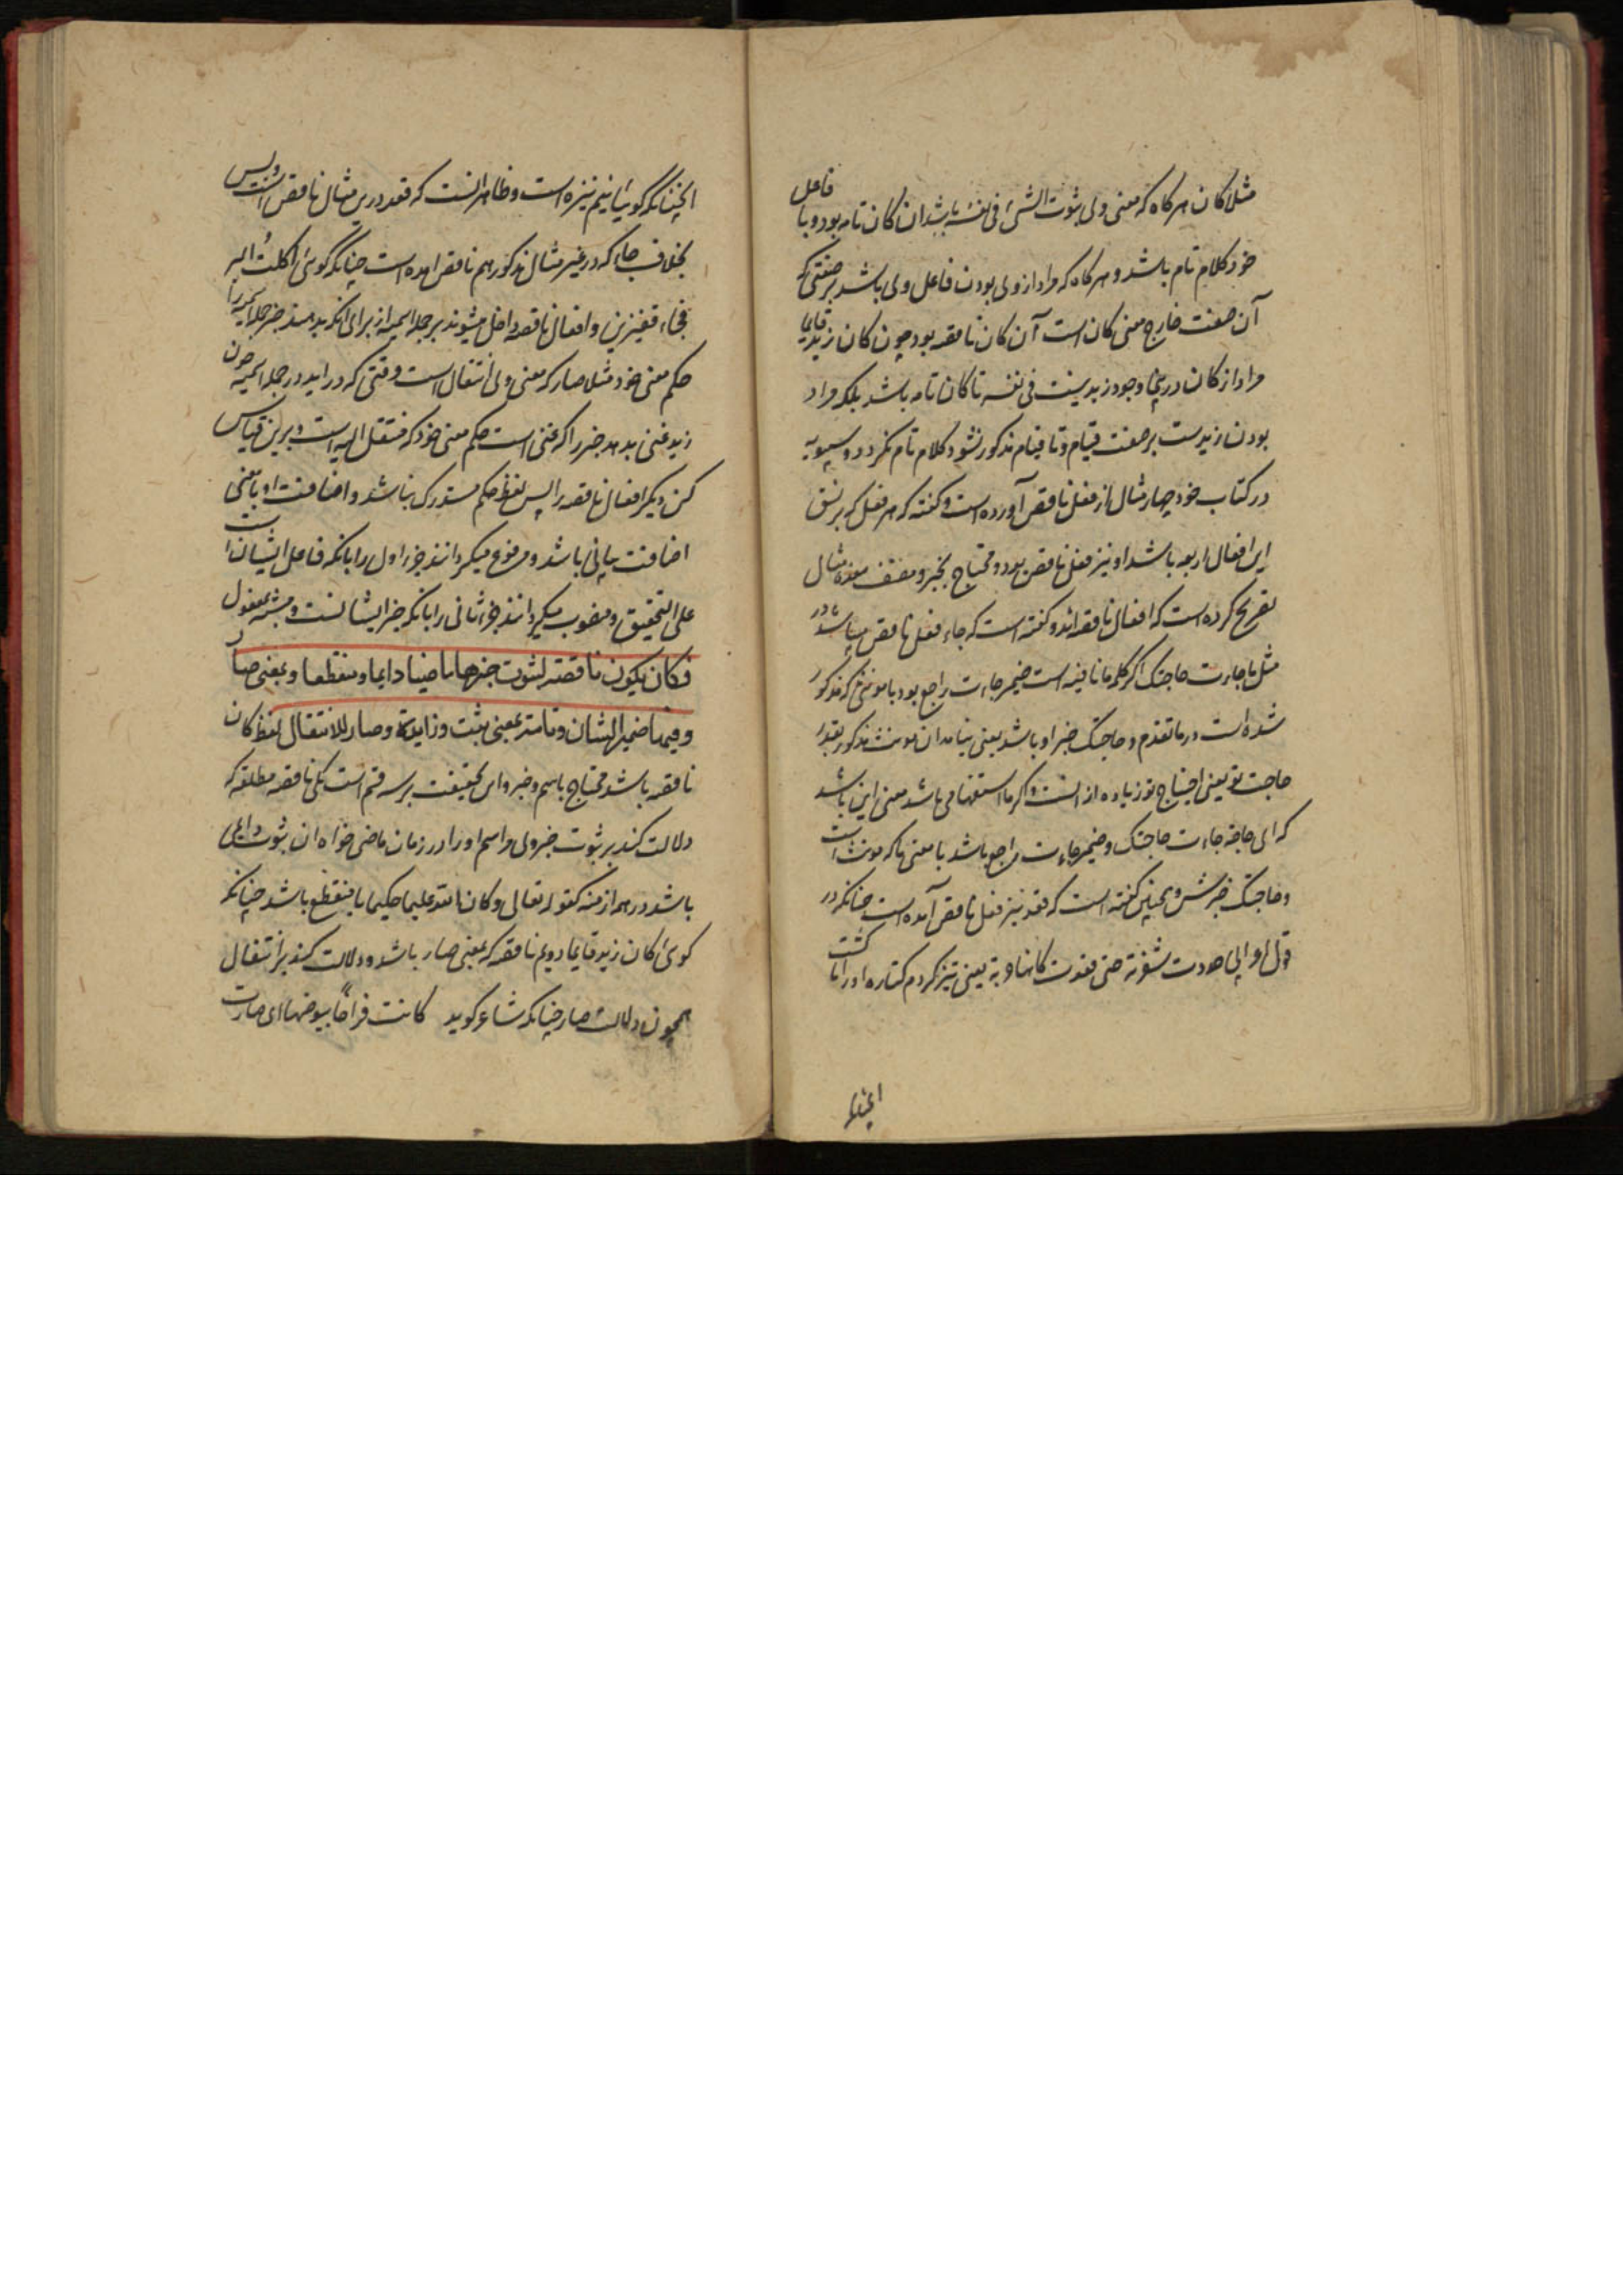 مثلا کان هرکاه که معنی ولی ثبوت الشئ فی نفسه باشد ان کان تامه بود و با فاعل
خود کلام تام باشد و هرکاه که مراد از ولی بودن فاعل ولی باشد بر صفتی که
آن صفت خارج معنی کان است آن کان ناقصه بود چون کان زید قایما
مراد از کان درینجا وجود زید نیست فی نفسه تا کان تامه باشد بلکه مراد
بودن زیدست بر صفت قیام و تا قیام مذکور نشود کلام تام نکردد و سیبویه
در کتاب خود چهار مثال از فعل ناقص آورده است و کفته که هر فعل که بر نسق
این افعال اربعه باشد او نیز فعل ناقص بود و محتاج بخبر و مصنف مثال
تصریح کرده است که افعال ناقصه اند و کفته است که جاء فعل ناقص میباشد در
مثل ما جاءت حاجتک اکر کلمه ما نافیه است ضمیر جاءت راجع بود با مونثی که مذکور
شده است در ما تقدم و حاجتک خبر او باشد یعنی نیامد ان مونث مذکور بقدر
حاجت تو یعنی احتیاج تو زیاده از انست و اکر ما استفهامی باشد معنی این باشد
که ای حاجة جاءت حاجتک و ضمیر جاءت راجع باشد با معنی ما که مونث است
و حاجتک خبرش و همچنین کفته است که قعد نیز فعل ناقص آمده است چنانکه در
قول اعرابی حددت شفرته حتی قعدت کانها حربة یعنی تیز کردم کتاره او را تا کشت
انچنا
انچنانکه کوئیا نیم نیزه است و ظاهر انست که قعد درین مثال ناقص است و بس
بخلاف جاء که در غیر مثال مذکور هم ناقص امده است چنانکه کوئی اکلت البر
فجاء قفیزین و افعال ناقصه داخل میشوند بر جمله اسمیه از برای انکه بدهند خبر جمله اسمیه را
حکم معنی خود مثلا صار که معنی ولی انتقال است وقتی که در اید در جمله اسمیه چون
زید غنی بدهد خبر را که غنی است حکم معنی خود که منتقل الیه است و برین قیاس
کن دیکر افعال ناقصه را پس لفظ حکم مستدرک نباشد و اضافت او با معنی
اضافت بیانی باشد و مرفوع میکردانند جزء اول را بانکه فاعل ایشان است
علی التحقیق و منصوب میکردانند جزء ثانی را بانکه خبر ایشانست و مشبه بمفعول
فکان یکون ناقصة لثبوت خبرها ماضیا دایما و منقطعا و بمعنی صار
و فیها ضمیر الشان و تامة بمعنی ثبت و زایدة و صار للانتقال لفظ کان
ناقصه باشد محتاج باسم و خبر و این بحقیقت بر سه قسم است یکی ناقصه مطلقه که
دلالت کند بر ثبوت خبر ولی مر اسم او را در زمان ماضی خواه ان ثبوت دایمی
باشد در همه ازمنه کقوله تعالی و کان الله علیما حکیما یا منقطع باشد چنانکه
کوئی کان زید قایما دویم ناقصه که بمعنی صار باشد و دلالت کند بر انتقال
همچون دلالت صار چنانکه شاعر کوید کانت فراخا بیوضها ای صارت